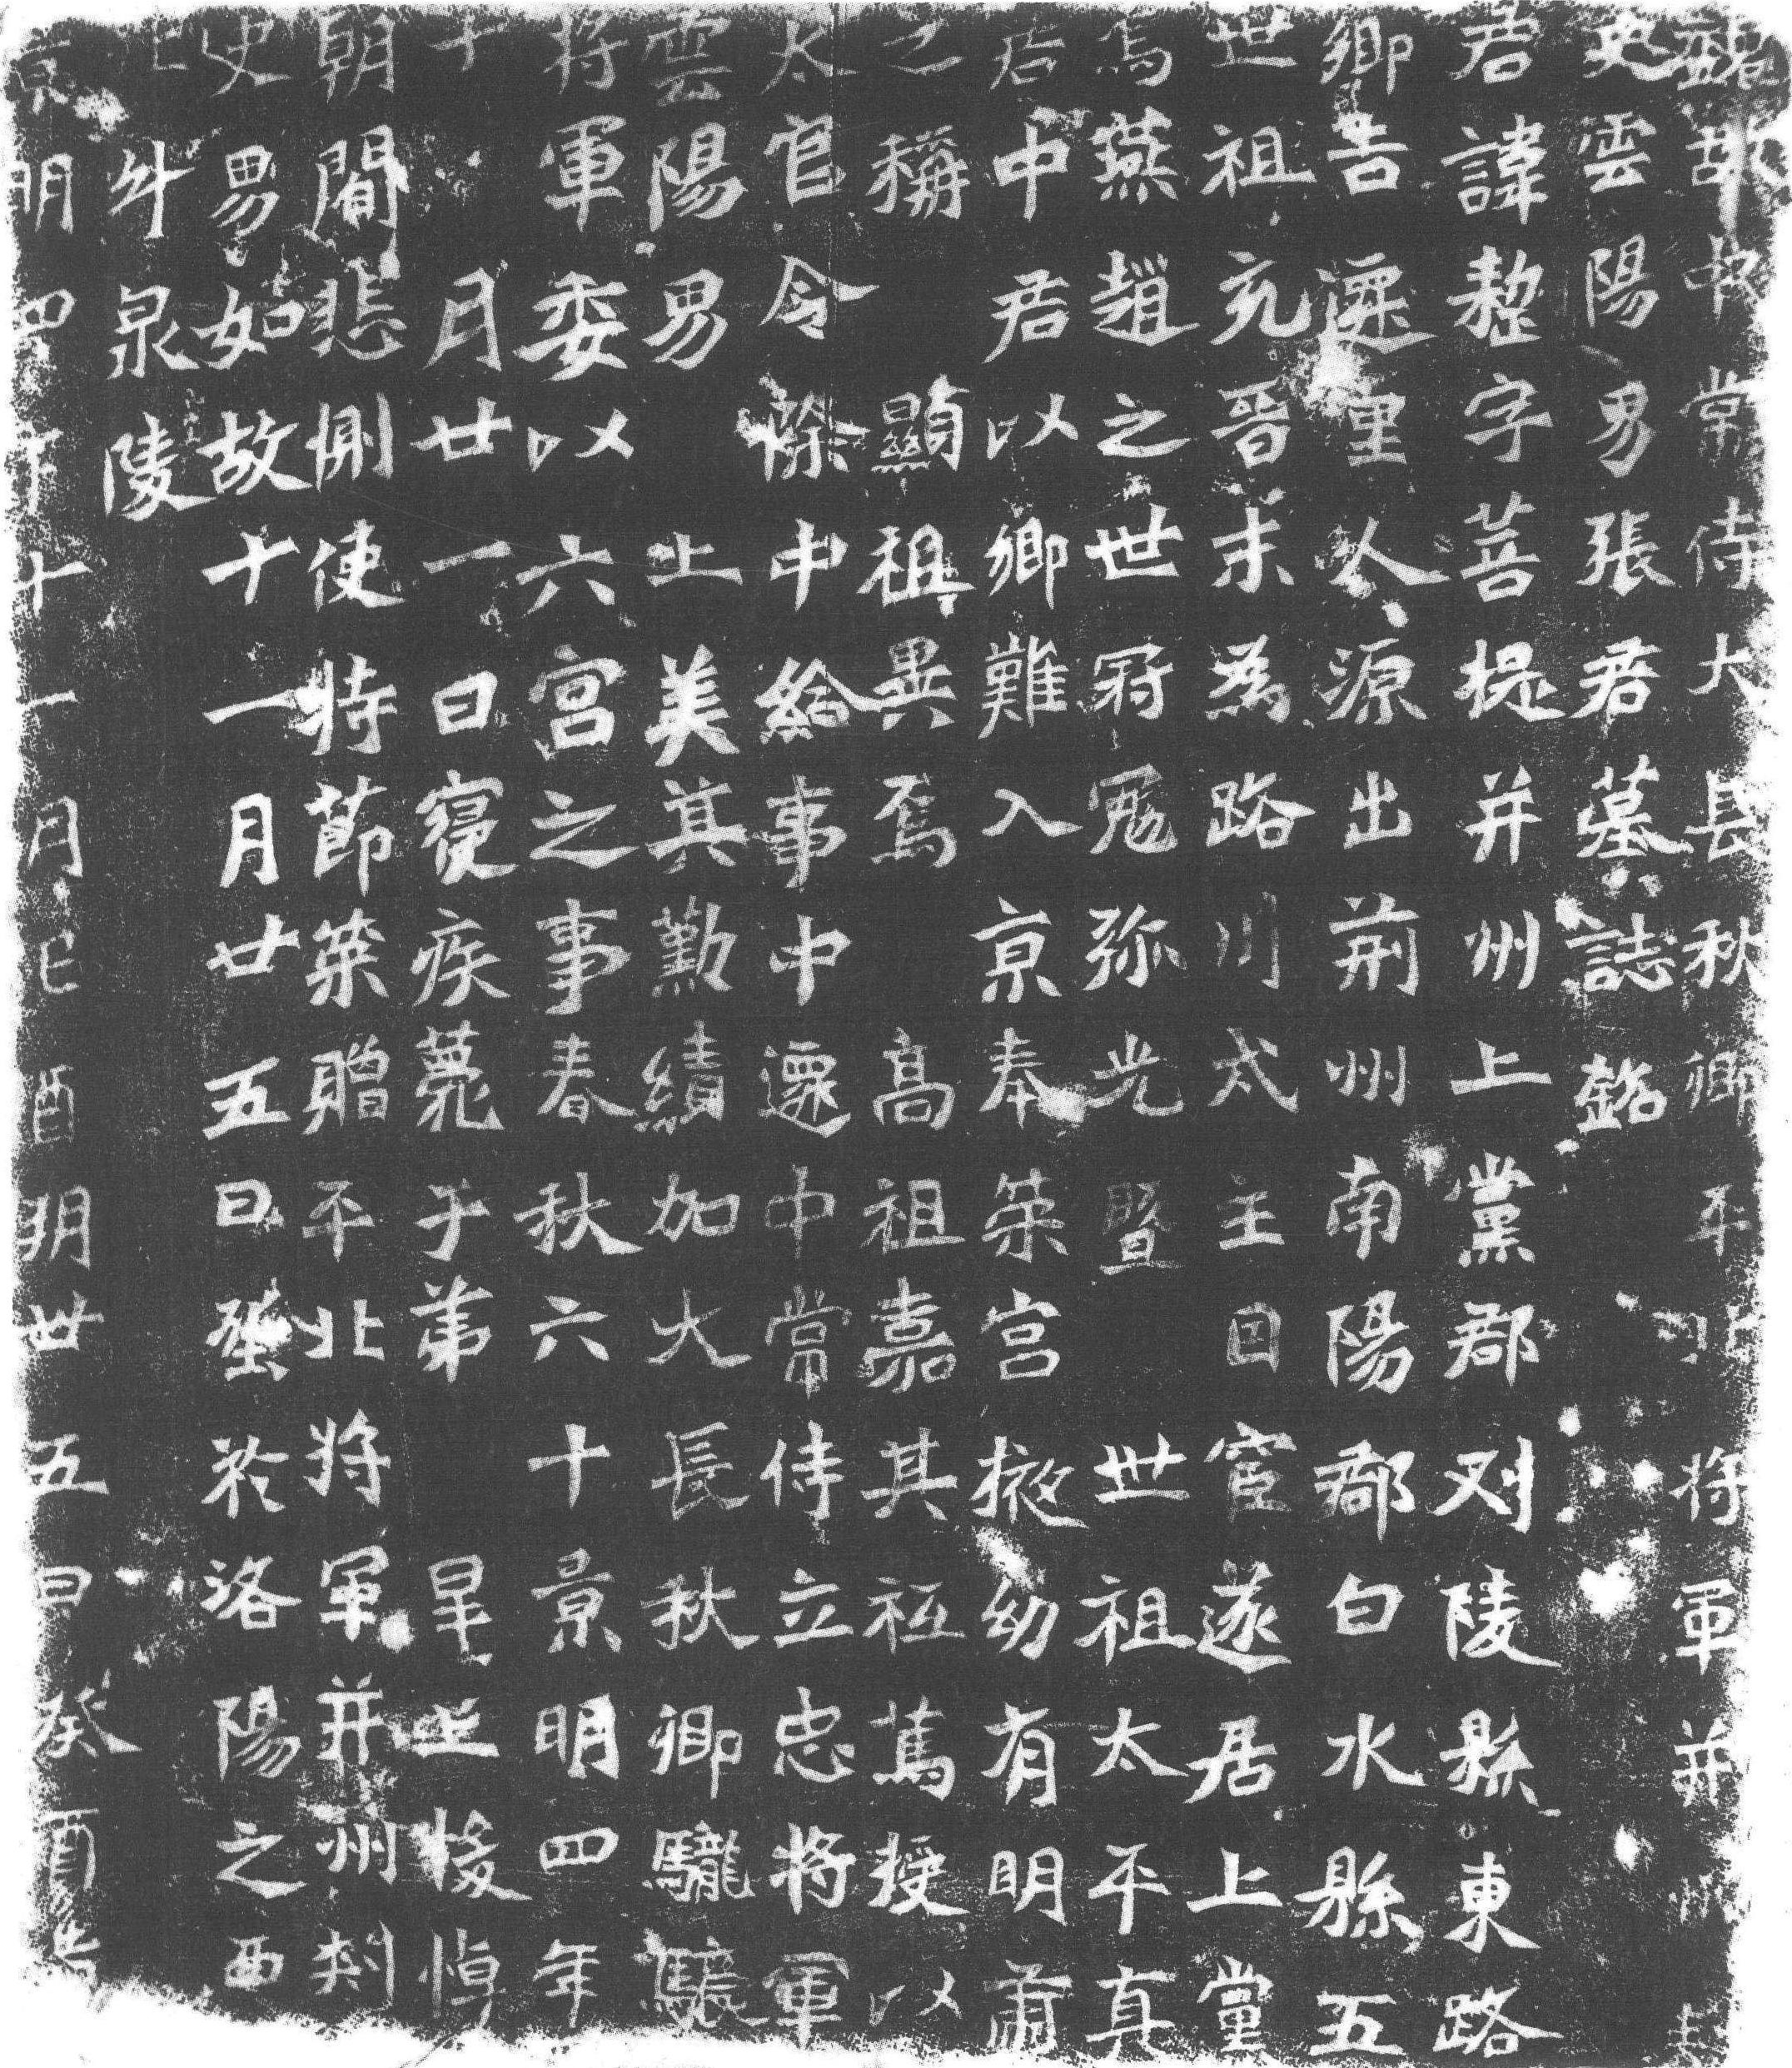 魏故中常侍大長秋卿平北將軍并州刾
史雲陽男張君墓誌銘
君諱整字菩提并州上黨郡刈陵縣東路
鄉吉遷里人源出荊州南陽郡白水縣五
世祖充晉末為路川太主因宦遂居上黨
焉燕趙之世冠冕弥光暨世祖太平真
君中君以鄉難入京奉榮宮掖幼有明肅
之稱顯祖異焉高祖嘉其祗篤授以
太官令除中給事中遷中常侍立忠將軍
雲陽男上美其勤績加大長秋卿驡驤
將軍委以六宮之事春秋六十景明四年
十月廿一日寑疾薨于第皇上悛悼
朝間悲惻使持節榮贈平北將軍并州刾
史男如故十一月廿五日塟於洛陽之西
北斗泉陵
景明四年十一月己酉朔廿五日癸酉造